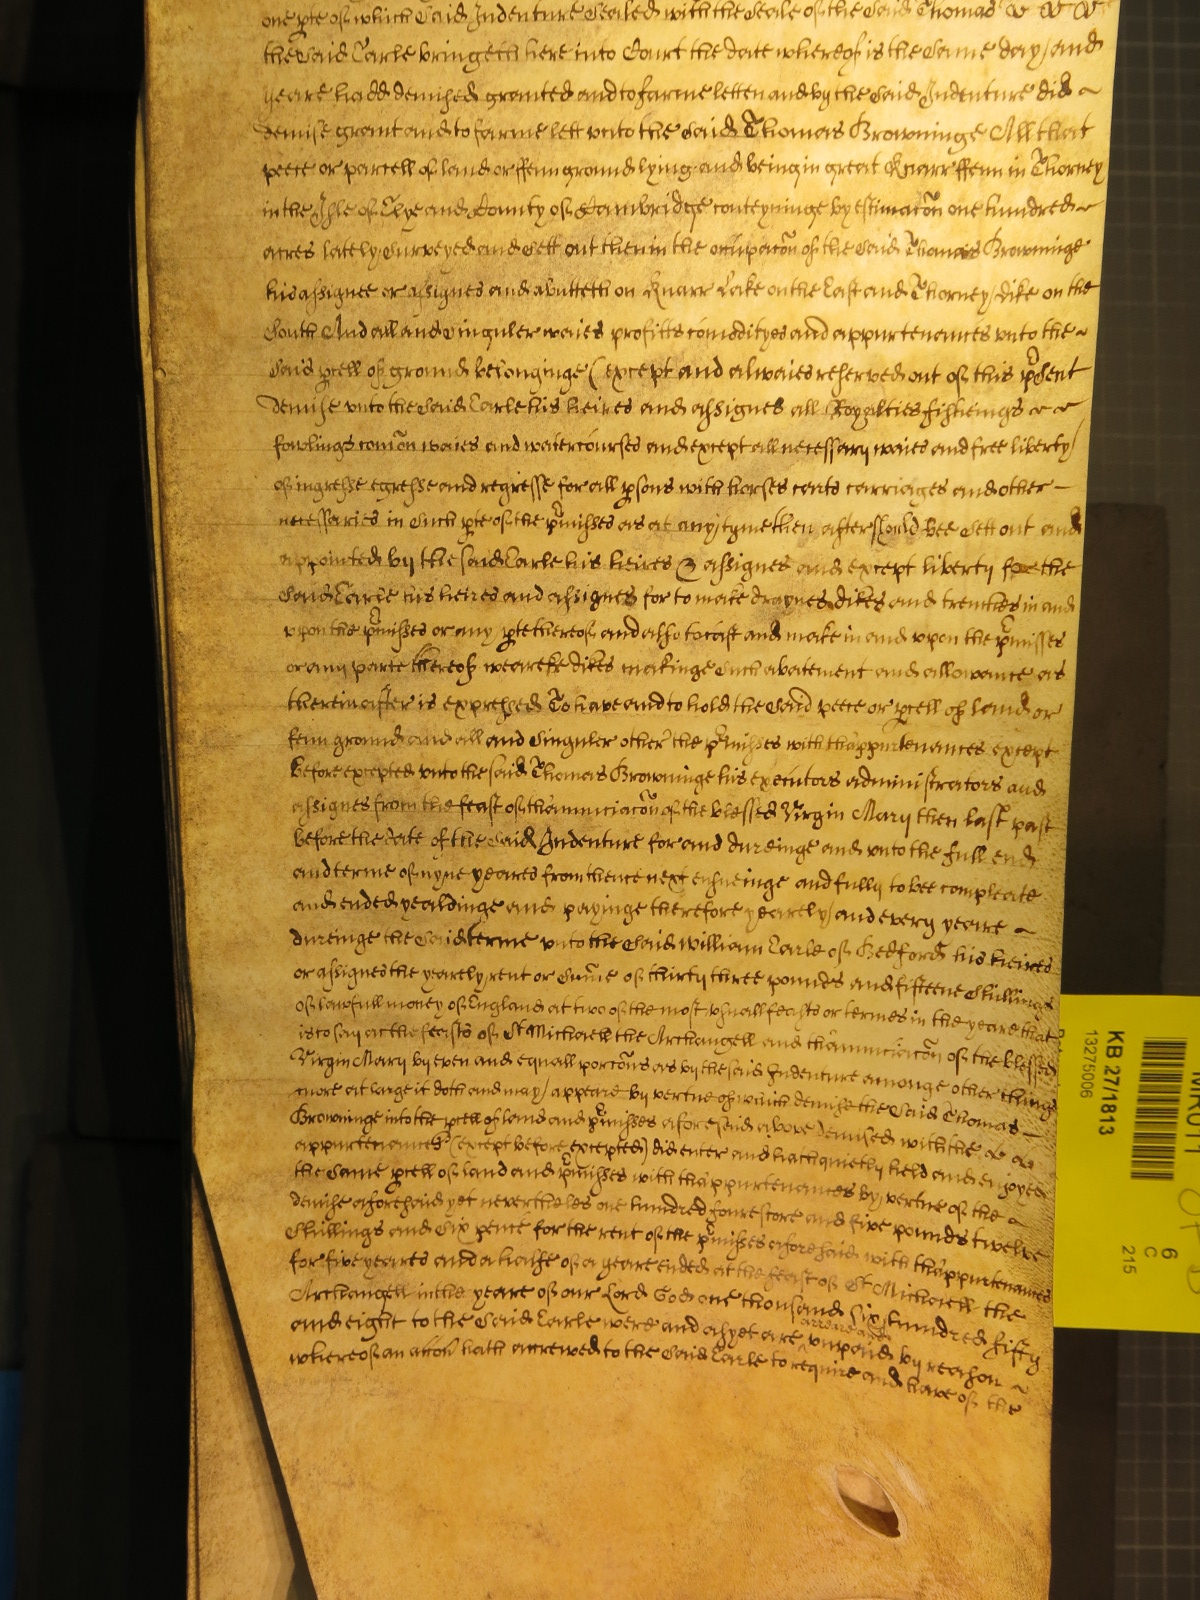 one pte of which Said Indenture Sealed with the Seale of the Said Thomas
the Said Earle bringeth here into Court the date whereof is the Same day and
yeare hadd demised graunted and to farme letten and by the Said Indenture did
demise grant and to farme lett unto the Said Thomas Browninge All that
peece or parcell of land or ffenn ground lying and being in great Knarr ffenn in Thorney
in the Isle of Elye and County of Cambridge conteyninge by estimacõn one hundred
acres lately Surveyed and Sett out then in the occupacõn of the Said Thomas Browninge
his assignee or assignes and abutteth on Knarr Lake on the East and Thorney Dike on the
South And all and Singuler waies profitts comõdityes and appurtenances unto the
Said pcell of ground belonginge (except and alwaies reserved out of this pSent
demise unto the Said Earle his heires and assignes all Royalties fisheings
fowlings comõn waies and watercourses and except all necessary waies and free liberty
of ingresse egresse and regresse for all psons with horses carts carriages and other
necessaries in Such pte of the pmisses as at any tyme then after should bee Sett out and
appointed by the said Earle his heires & assignes and except liberty for the
Said Earle his heires and assignes for to make draynes dikes and trenches in and
upon the pmisses or any pte thereof and also to cast and make in and upon the pmisses
or any parte thereof weareke dikes makinge Such abatement and allowance as
thereinafter is expressed To have and to hold the Said peece or pcell of land or
fenn ground and all and Singuler other the pmisses with thappurtenances except
before excepted unto the said Thomas Browninge his executors administrators and
assignes from the feast of thannunciacõn of the blessed Virgin Mary then last past
before the date of the Said Indenture for and dureinge and unto the full end
and terme of nyne yeares from thence next ensueinge and fully to bee compleate
and ended yealdinge and payinge therefore yearely and every yeare
dureinge the Said terme unto the Said William Earle of Bedford his heires
or assignes the yearely rent or Sume of thirty three pounds and fifteene Shillings
of lawfull money of England at two of the most usuall feasts or termes in the yeare that
is to say at the feasts of St Michaell the Archangell and thannunciacõn of the blessed
Virgin Mary by even and equall porcõns as by the said Indenture amonge other things
more at large it doth and may appeare by vertue of which demise the Said Thomas
Browninge into the pcell of land and pmisses aforesaid above demised with the
appurtenances (except before excepted) did enter and hath quietly held and enjoyed
the Same pcell of land and pmisses with thappurtenances by vertue of the
demise aforesaid yet nevertheles one hundred fourescore and five pounds twelve
Shillings and Six pence for the rent of the pmisses aforesaid with thappurtenances
for five yeares and a halfe of a yeare ended at the feast of St Michaell the
Archangell in the yeare of our Lord God one thousand Six hundred fifty
and eight to the Said Earle were and as yet are arreare and unpaid by reason
whereof an accõn hath accrewed to the Said Earle to require and have of the
KB 27/1813
13275006
6
C
215